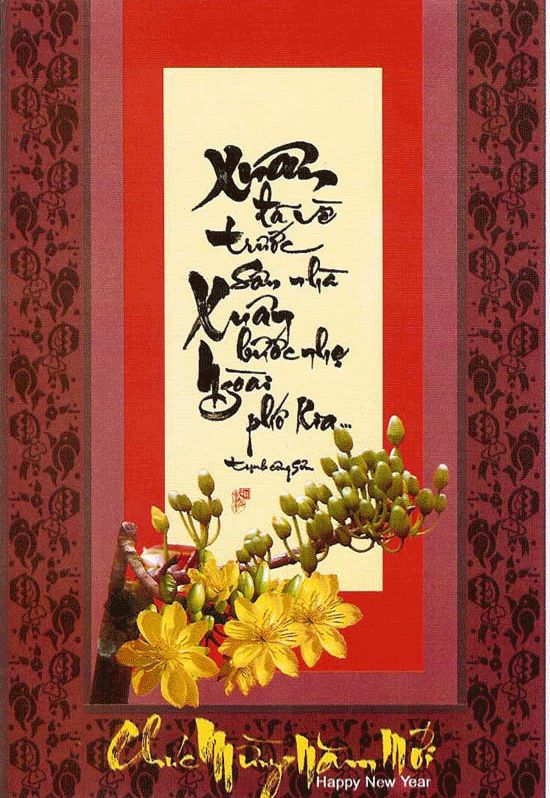 Xuân
đã về
trước
sân nhà
Xuân
bước nhẹ
Ngoài
phố kia...
Trịnh Công Sơn
Chúc Mừng Năm Mới
Happy New Year